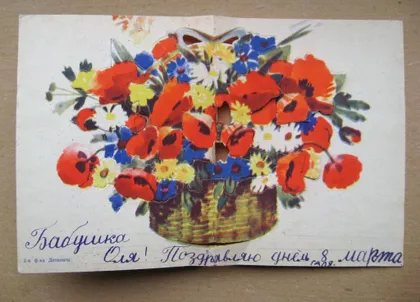 Бабушка
Оля! Поздравляю днём 8 марта
2-я ф-ка